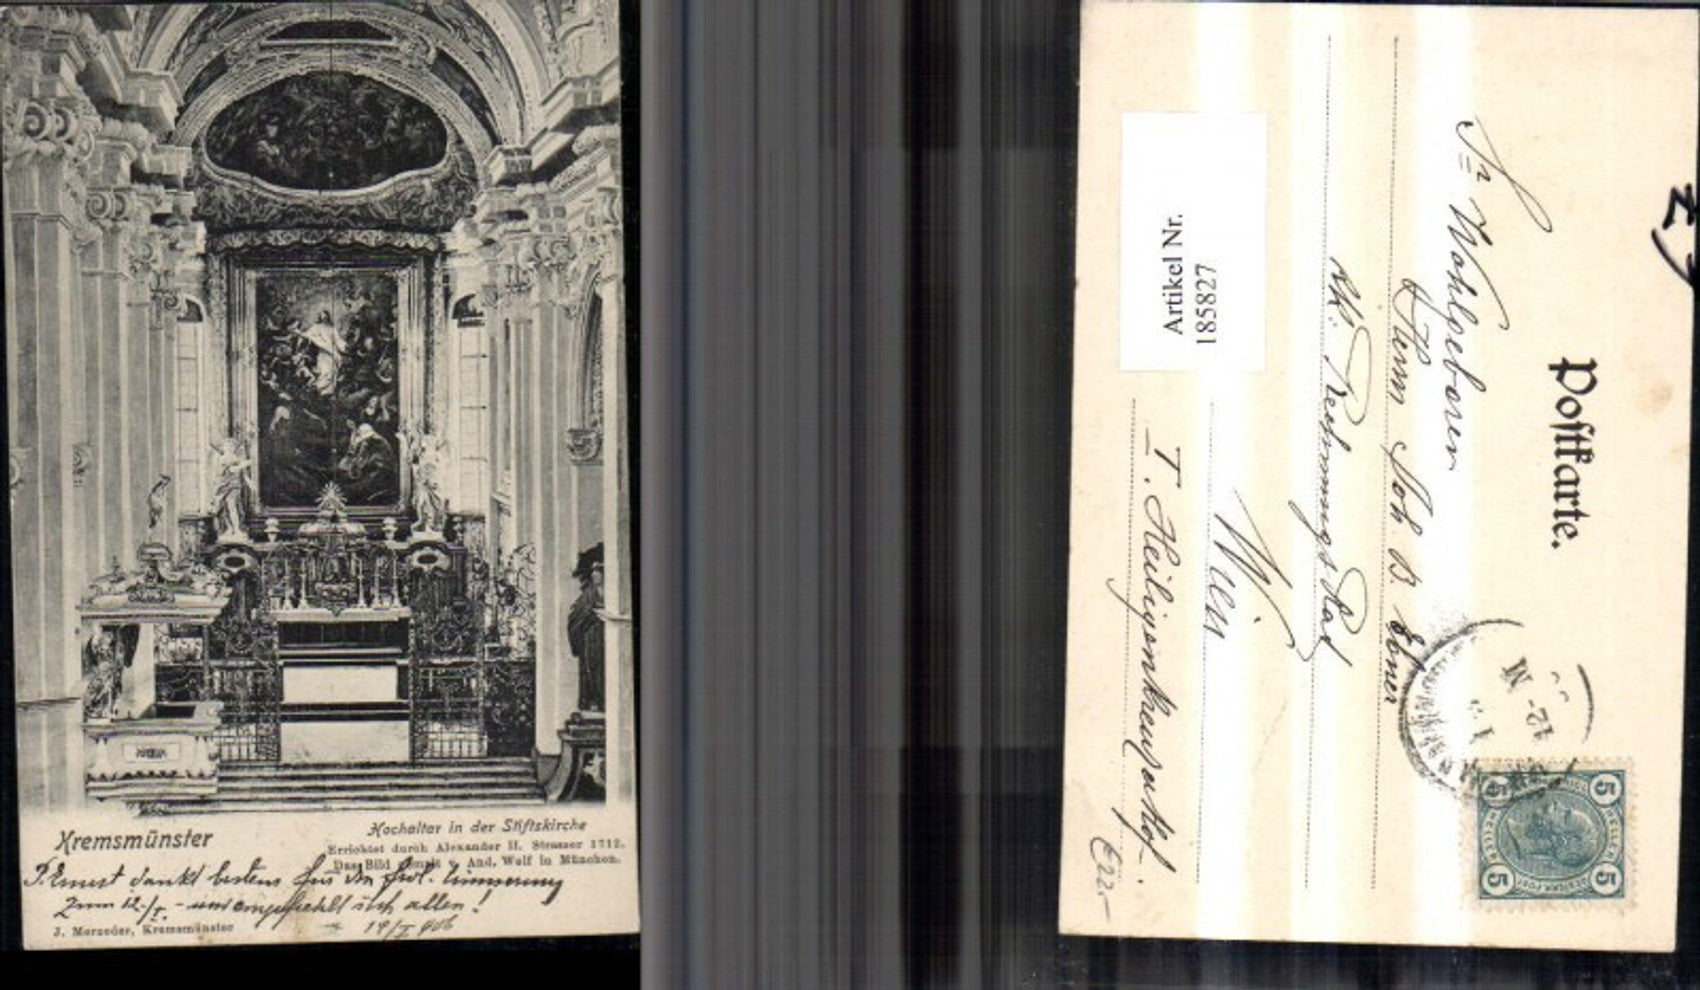 Kremsmünster
Hochaltar in der Stiftskirche
Errichtet durch Alexander II. Strasser 1712.
Das Bild gemalt v. And. Wolf in München.
P. Ernst dankt bestens für die frdl. Erinnerung
zum 12./I. - und empfiehlt sich allen!
19/I 906
J. Merzeder, Kremsmünster
Postkarte.
Sr Wohlgeboren
Herrn Joh. B. Ebner
kk. Rechnungs Rat
Wien
I. Heiligenkreuzerhof.
Artikel Nr.
185827
12-M
5 5
5 5
E22.-